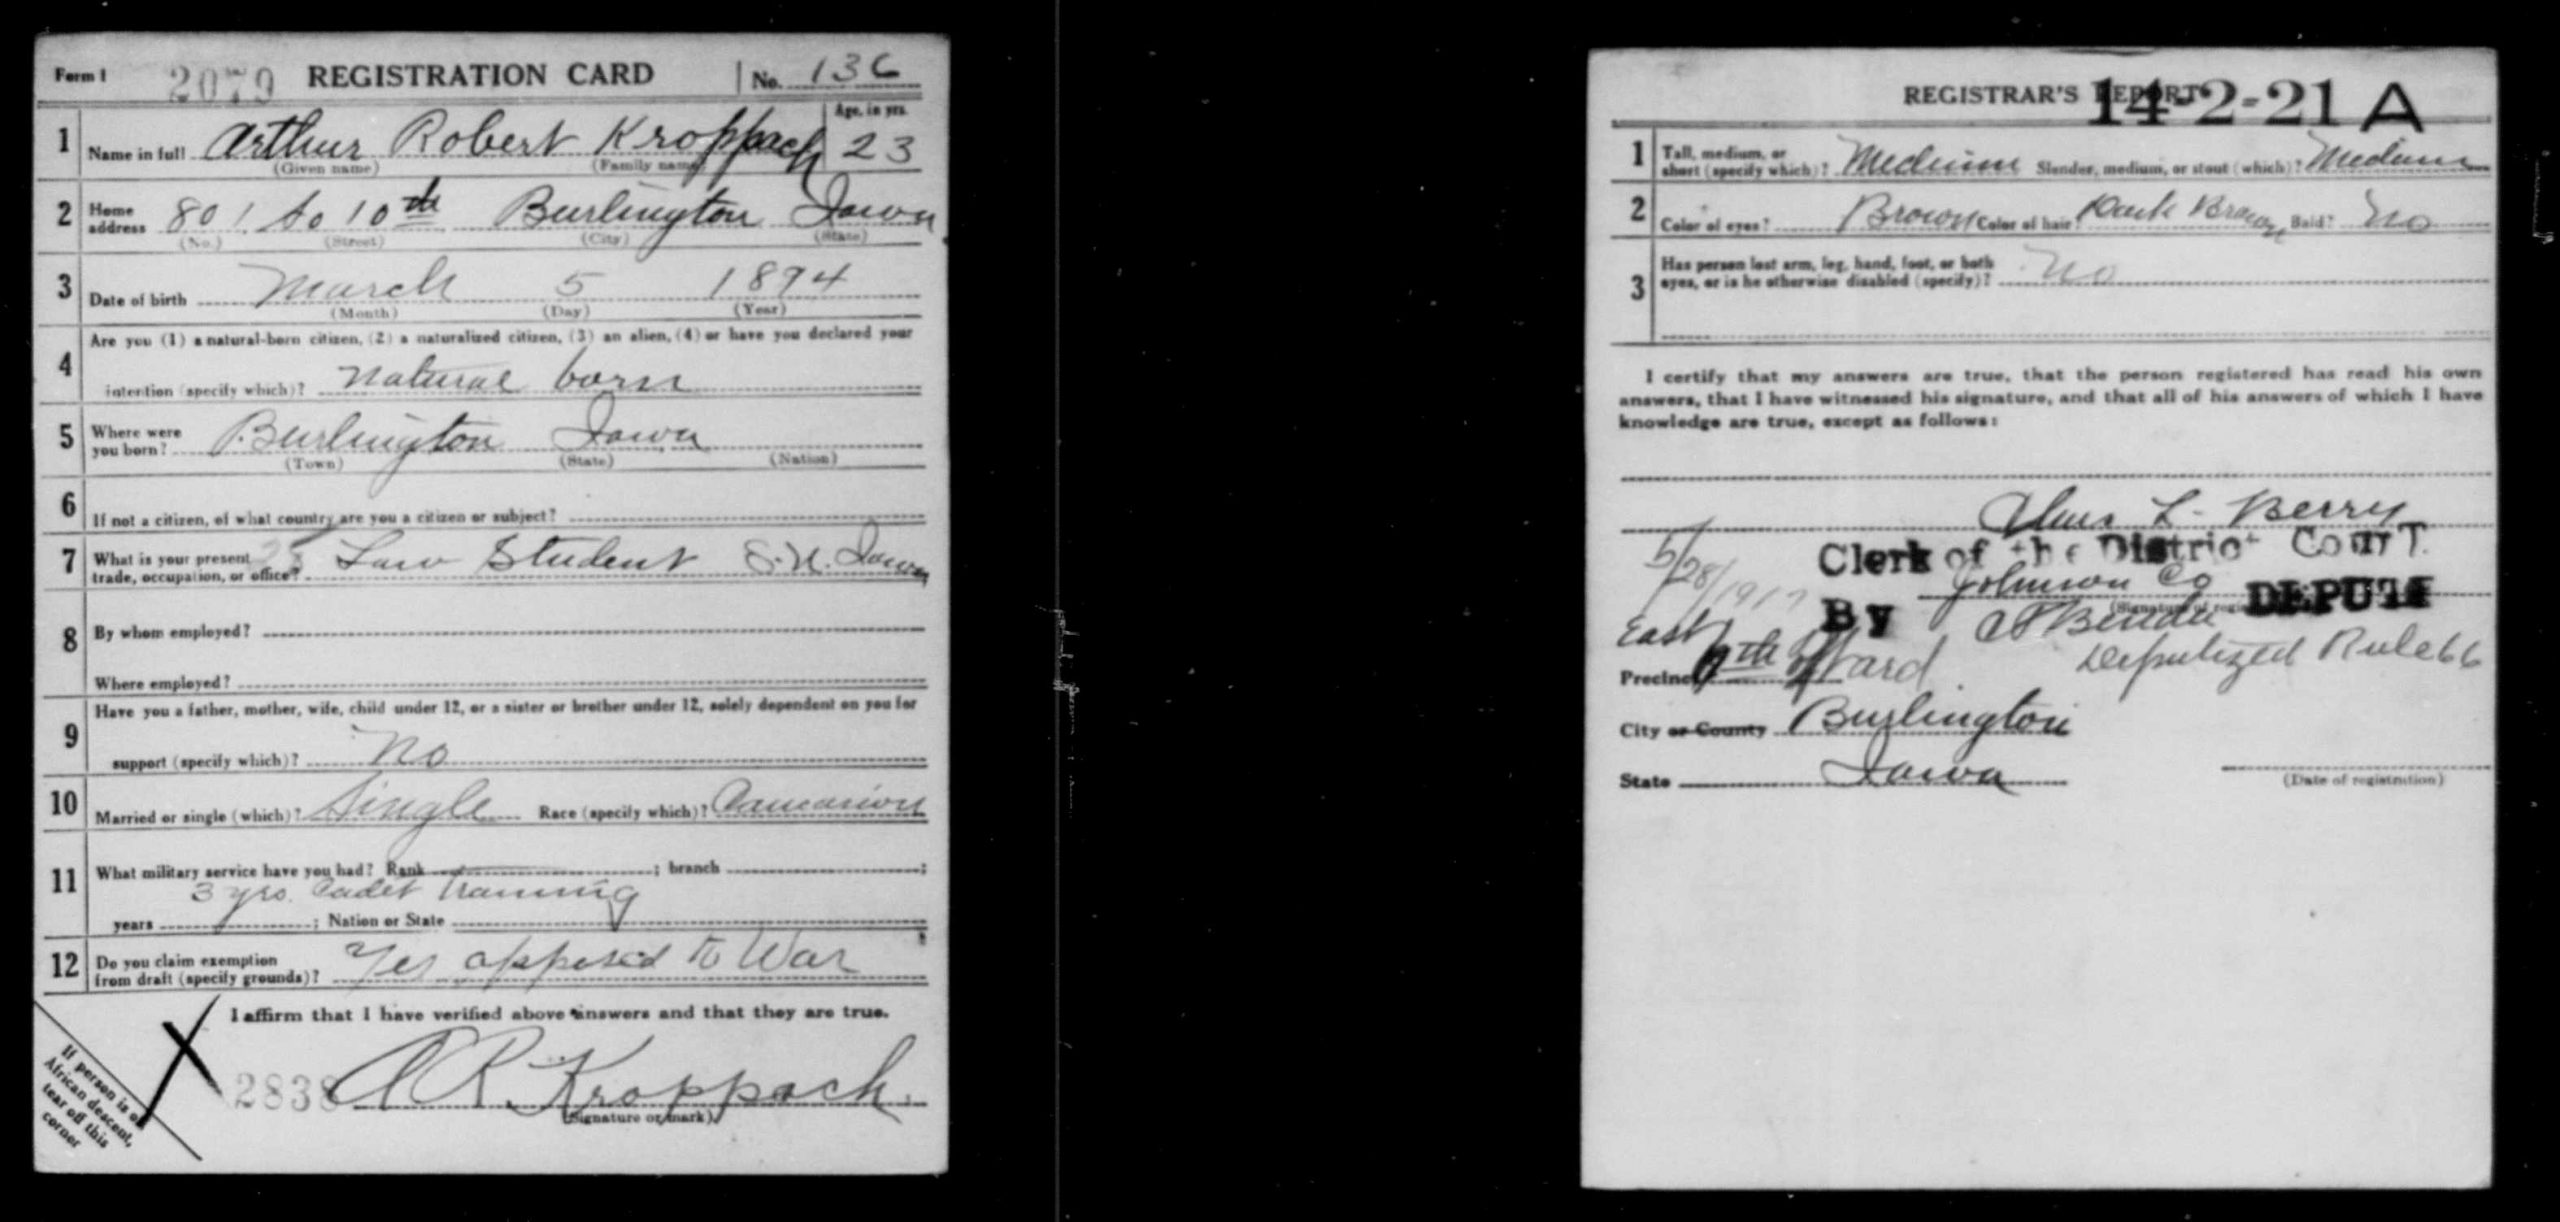 Form 1 2079 REGISTRATION CARD No. 136
1 Name in full Arthur Robert Kroppach Age, in yrs. 23
(Given name) (Family name)
2 Home address 801 So 10th Burlington Iowa
(No.) (Street) (City) (State)
3 Date of birth March 5 1894
(Month) (Day) (Year)
4 Are you (1) a natural-born citizen, (2) a naturalized citizen, (3) an alien, (4) or have you declared your
intention (specify which)? natural born
5 Where were you born? Burlington Iowa
(Town) (State) (Nation)
6 If not a citizen, of what country are you a citizen or subject?
7 What is your present trade, occupation, or office? Law Student S.U. Iowa
8 By whom employed?
Where employed?
9 Have you a father, mother, wife, child under 12, or a sister or brother under 12, solely dependent on you for
support (specify which)? No
10 Married or single (which)? Single Race (specify which)? Caucasion
11 What military service have you had? Rank ; branch ;
3 yrs. Cadet Training
years ; Nation or State
12 Do you claim exemption from draft (specify grounds)? Yes opposed to War
I affirm that I have verified above answers and that they are true.
2838 A R. Kroppach.
(Signature or mark)
If person is of African descent, tear off this corner
REGISTRAR'S REPORT 14-2-21 A
1 Tall, medium, or short (specify which)? Medium Slender, medium, or stout (which)? Medium
2 Color of eyes? Brown Color of hair? Dark Brown Bald? No
3 Has person lost arm, leg, hand, foot, or both eyes, or is he otherwise disabled (specify)? No
I certify that my answers are true, that the person registered has read his own
answers, that I have witnessed his signature, and that all of his answers of which I have
knowledge are true, except as follows:
L. Berry
Clerk of the District Court.
5/28/1917 Johnson Co
(Signature of
By DEPUTY
East Deputized Rule 66
Precinct Ward
City or County Burlington
State Iowa
(Date of registration)